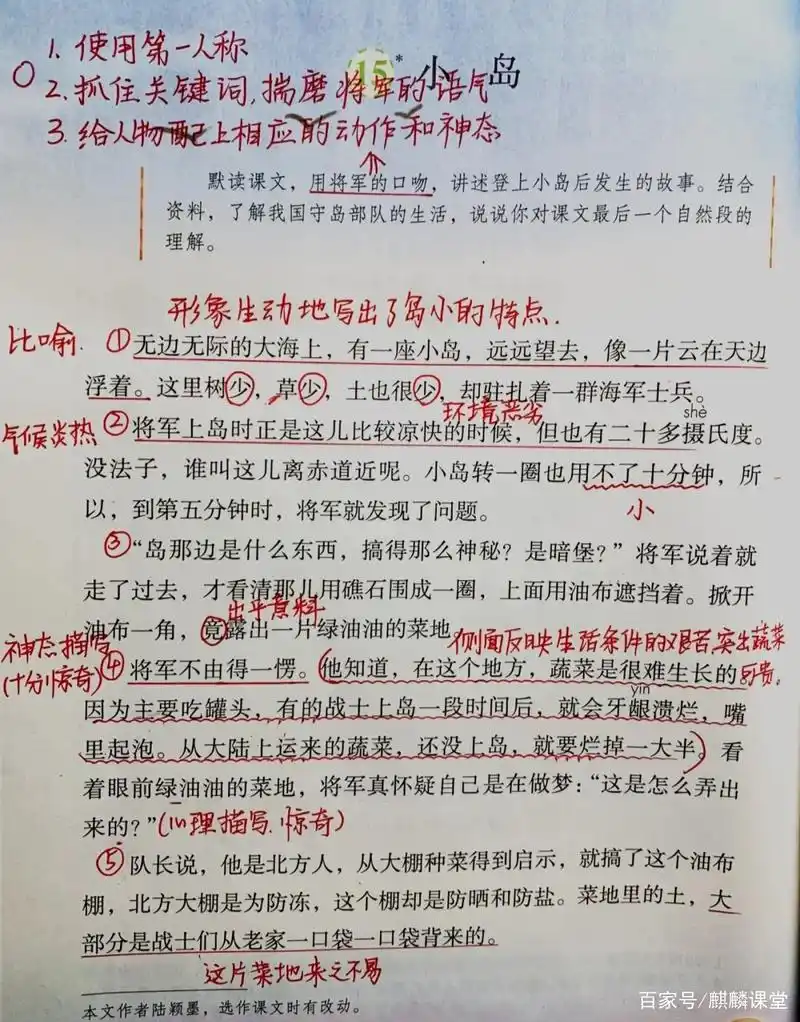 1. 使用第一人称
15* 小 岛
2. 抓住关键词,揣磨将军的语气
3. 给人物配上相应的动作和神态
默读课文，用将军的口吻，讲述登上小岛后发生的故事。结合
资料，了解我国守岛部队的生活，说说你对课文最后一个自然段的
理解。
形象生动地写出了岛小的特点.
比喻. ①无边无际的大海上，有一座小岛，远远望去，像一片云在天边
浮着。这里树少，草少，土也很少，却驻扎着一群海军士兵。
环境恶劣
shè
气候炎热 ②将军上岛时正是这儿比较凉快的时候，但也有二十多摄氏度。
没法子，谁叫这儿离赤道近呢。小岛转一圈也用不了十分钟，所
以，到第五分钟时，将军就发现了问题。
小
③“岛那边是什么东西，搞得那么神秘？是暗堡？”将军说着就
走了过去，才看清那儿用礁石围成一圈，上面用油布遮挡着。掀开
出乎意料
油布一角，竟露出一片绿油油的菜地。
侧面反映生活条件的艰苦,突出蔬菜
可贵.
神态描写
(十分惊奇) ④将军不由得一愣。(他知道，在这个地方，蔬菜是很难生长的。
yín
因为主要吃罐头，有的战士上岛一段时间后，就会牙龈溃烂，嘴
里起泡。从大陆上运来的蔬菜，还没上岛，就要烂掉一大半。)看
着眼前绿油油的菜地，将军真怀疑自己是在做梦：“这是怎么弄出
来的？”(心理描写.惊奇)
⑤队长说，他是北方人，从大棚种菜得到启示，就搞了这个油布
棚，北方大棚是为防冻，这个棚却是防晒和防盐。菜地里的土，大
部分是战士们从老家一口袋一口袋背来的。
这片菜地来之不易
本文作者陆颖墨，选作课文时有改动。
百家号/麒麟课堂